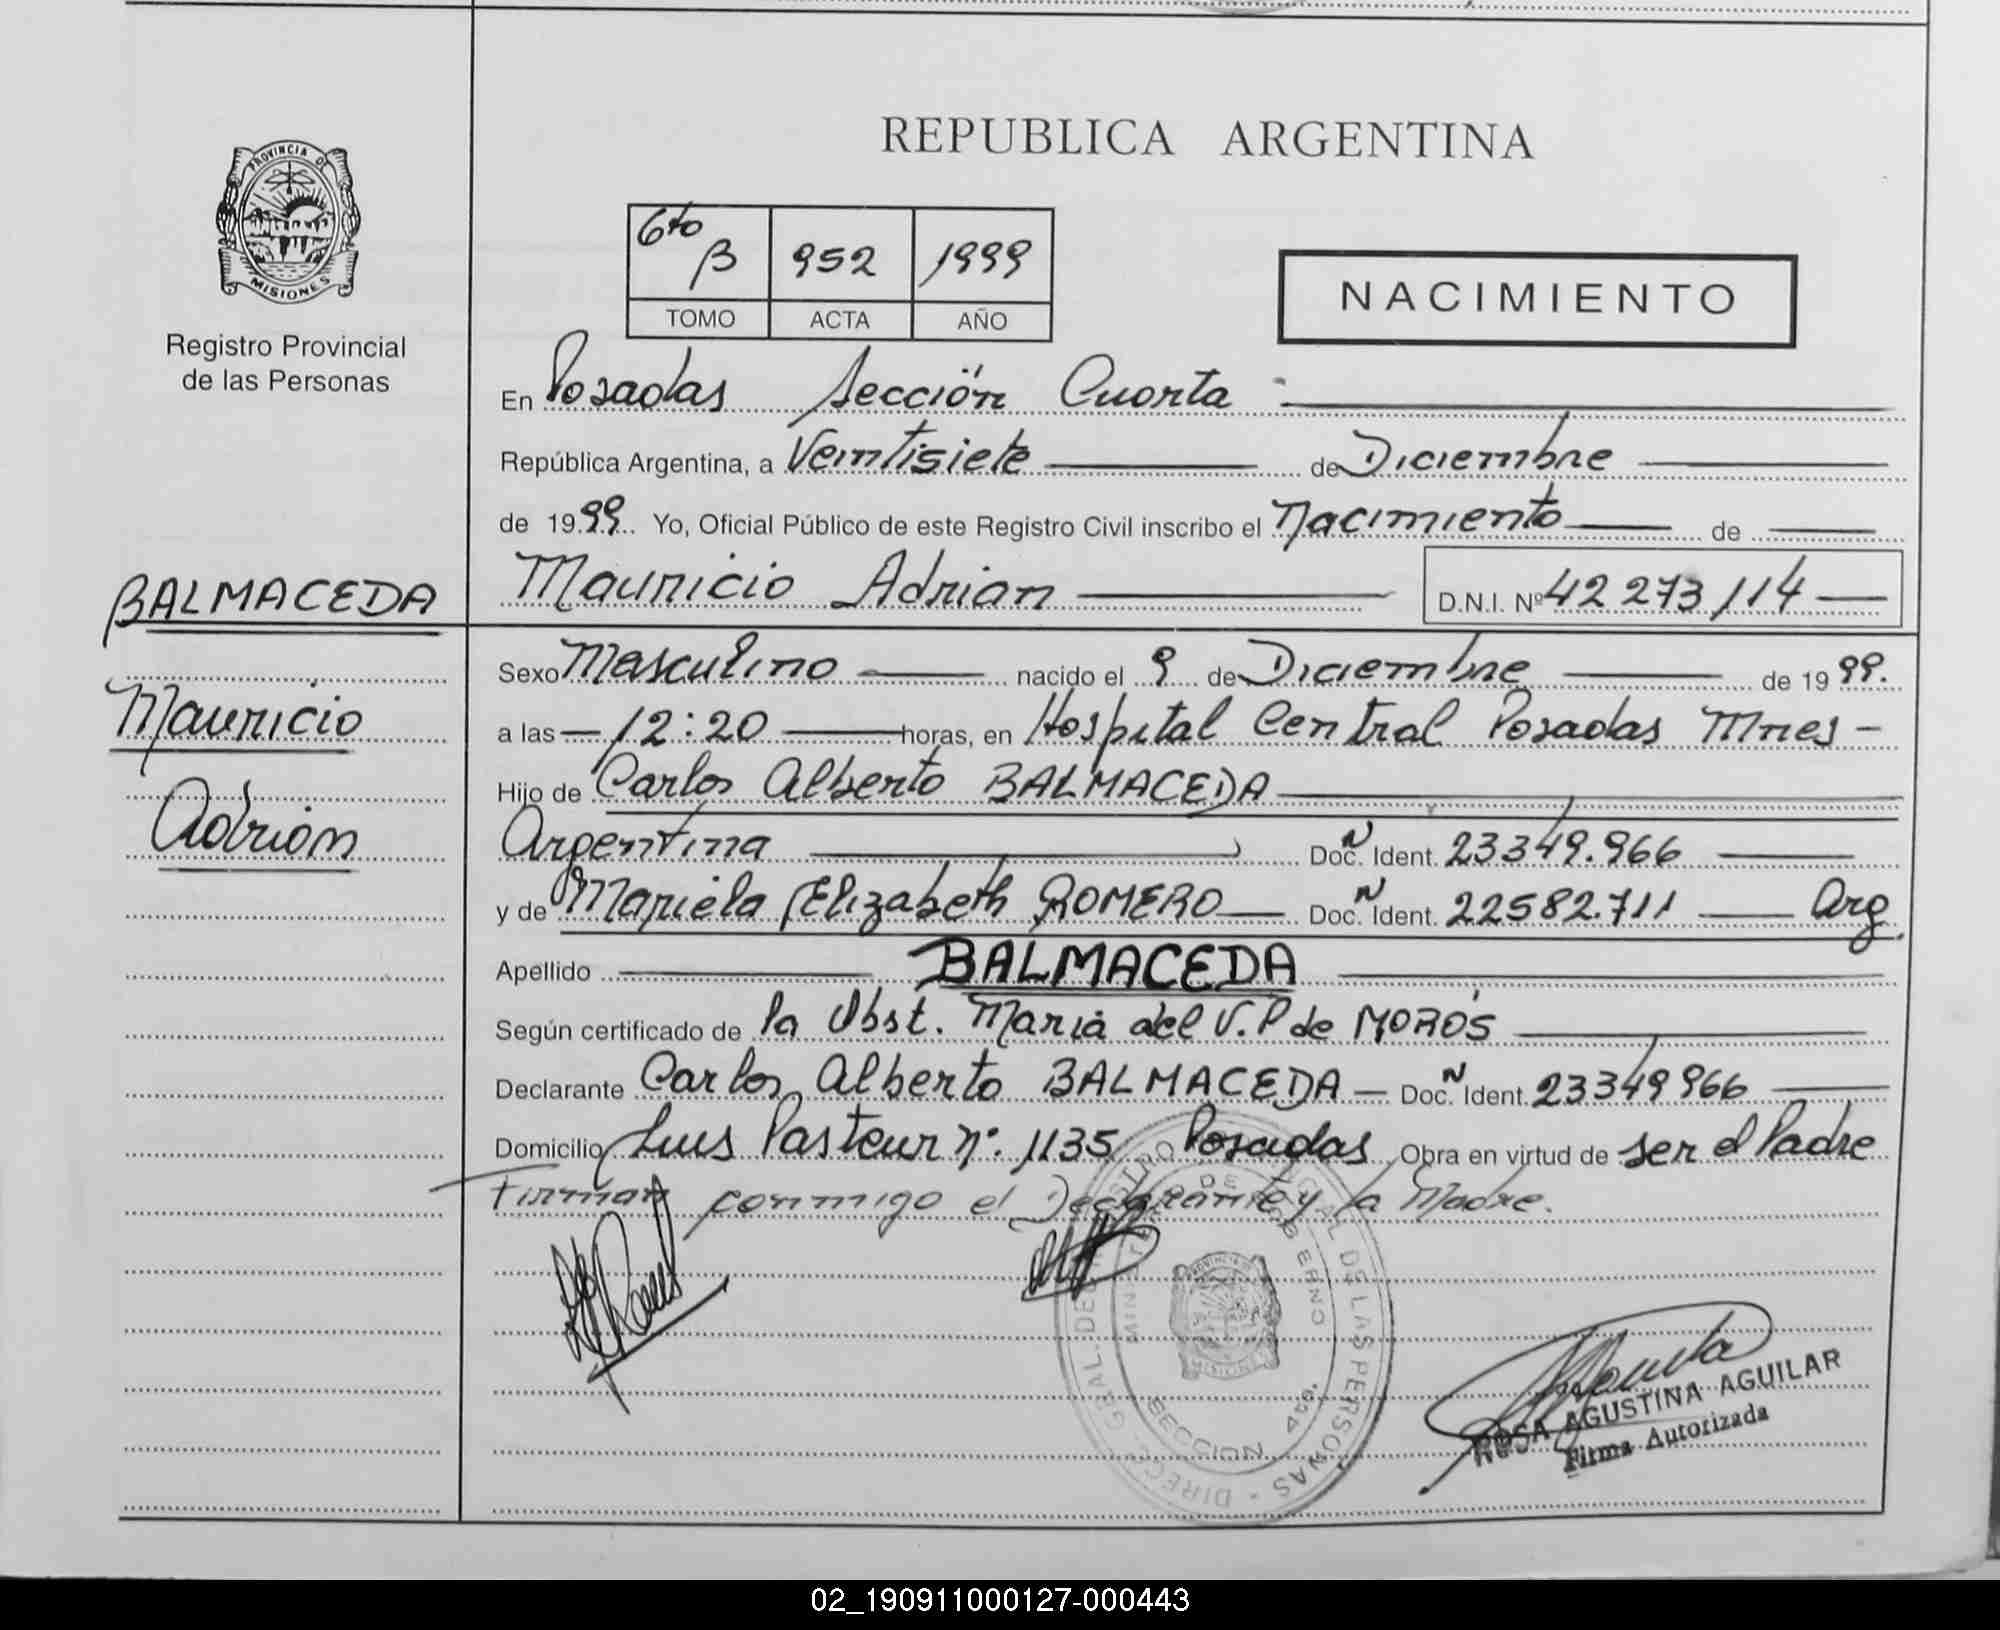 REPUBLICA ARGENTINA
PROVINCIA DE
MISIONES
Registro Provincial
de las Personas
6to B 952 1999
TOMO ACTA AÑO
NACIMIENTO
En Posadas Sección Cuarta
República Argentina, a Veintisiete de Diciembre
de 1999. Yo, Oficial Público de este Registro Civil inscribo el Nacimiento de
BALMACEDA
Mauricio Adrian D.N.I. Nº 42 273 114
Sexo Masculino nacido el 9 de Diciembre de 19 99.
Mauricio
a las 12:20 horas, en Hospital Central Posadas Mnes -
Hijo de Carlos Alberto BALMACEDA
Adrián
Argentina Doc. N Ident. 23349.966
y de Mariela Elizabeth ROMERO Doc. N Ident. 22582.711 Arg.
Apellido BALMACEDA
Según certificado de la Obst. Maria del V.P de MORÓS
Declarante Carlos Alberto BALMACEDA - Doc. N Ident. 23349966
Domicilio Luis Pasteur Nº 1135 Posadas Obra en virtud de ser el Padre
Firman conmigo el Declarante y la Madre.
SECCION 4ta.
MISIONES
ROSA AGUSTINA AGUILAR
Firma Autorizada
02_190911000127-000443